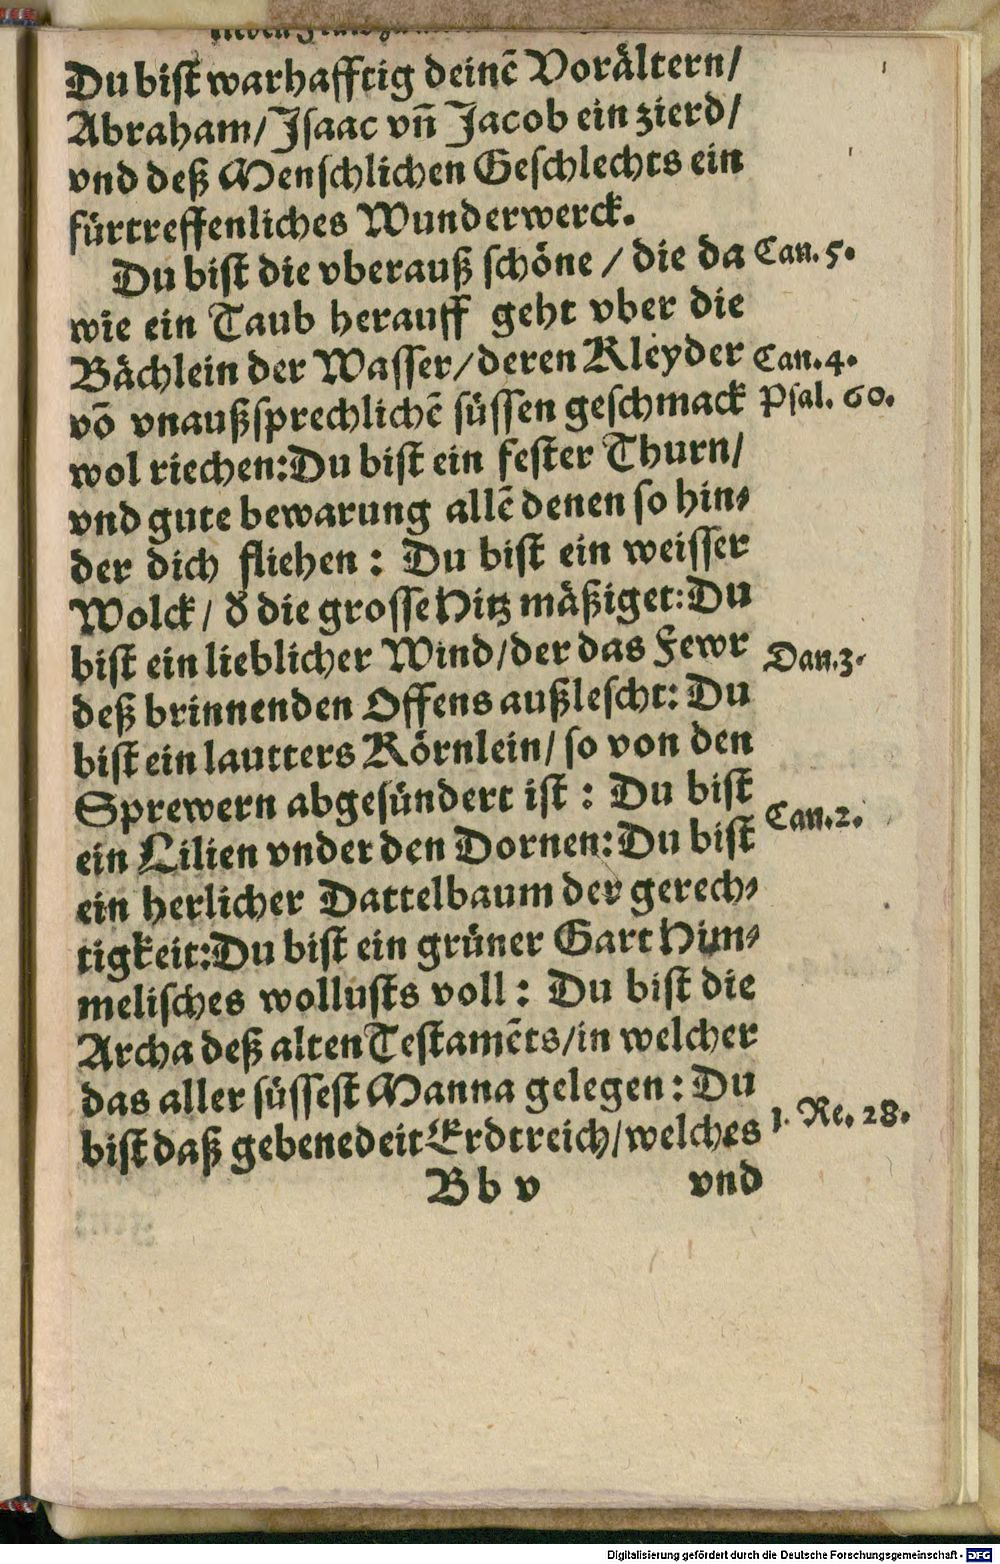 Du bist warhafftig deinẽ Vorältern/
Abraham/ Jsaac vñ Jacob ein zierd/
vnd deß Menschlichen Geschlechts ein
fürtreffenliches Wunderwerck.
Du bist die vberauß schöne / die da Can. 5.
wie ein Taub herauff geht vber die
Bächlein der Wasser/ deren Kleyder Can. 4.
võ vnaußsprechlichẽ süssen geschmack Psal. 60.
wol riechen: Du bist ein fester Thurn/
vnd gute bewarung allẽ denen so hin⸗
der dich fliehen : Du bist ein weisser
Wolck/ d̕ die grosse Hitz mäßiget: Du
bist ein lieblicher Wind/ der das Fewr Dan. 3.
deß brinnenden Offens außlescht: Du
bist ein lautters Körnlein/ so von den
Sprewern abgesündert ist : Du bist
ein Lilien vnder den Dornen: Du bist Can. 2.
ein herlicher Dattelbaum der gerech⸗
tigkeit: Du bist ein grüner Gart Him⸗
melisches wollusts voll : Du bist die
Archa deß alten Testamẽts/ in welcher
das aller süssest Manna gelegen : Du
bist daß gebenedeit Erdtreich/ welches 1. Re. 28.
B b v vnd
Digitalisierung gefördert durch die Deutsche Forschungsgemeinschaft - DFG